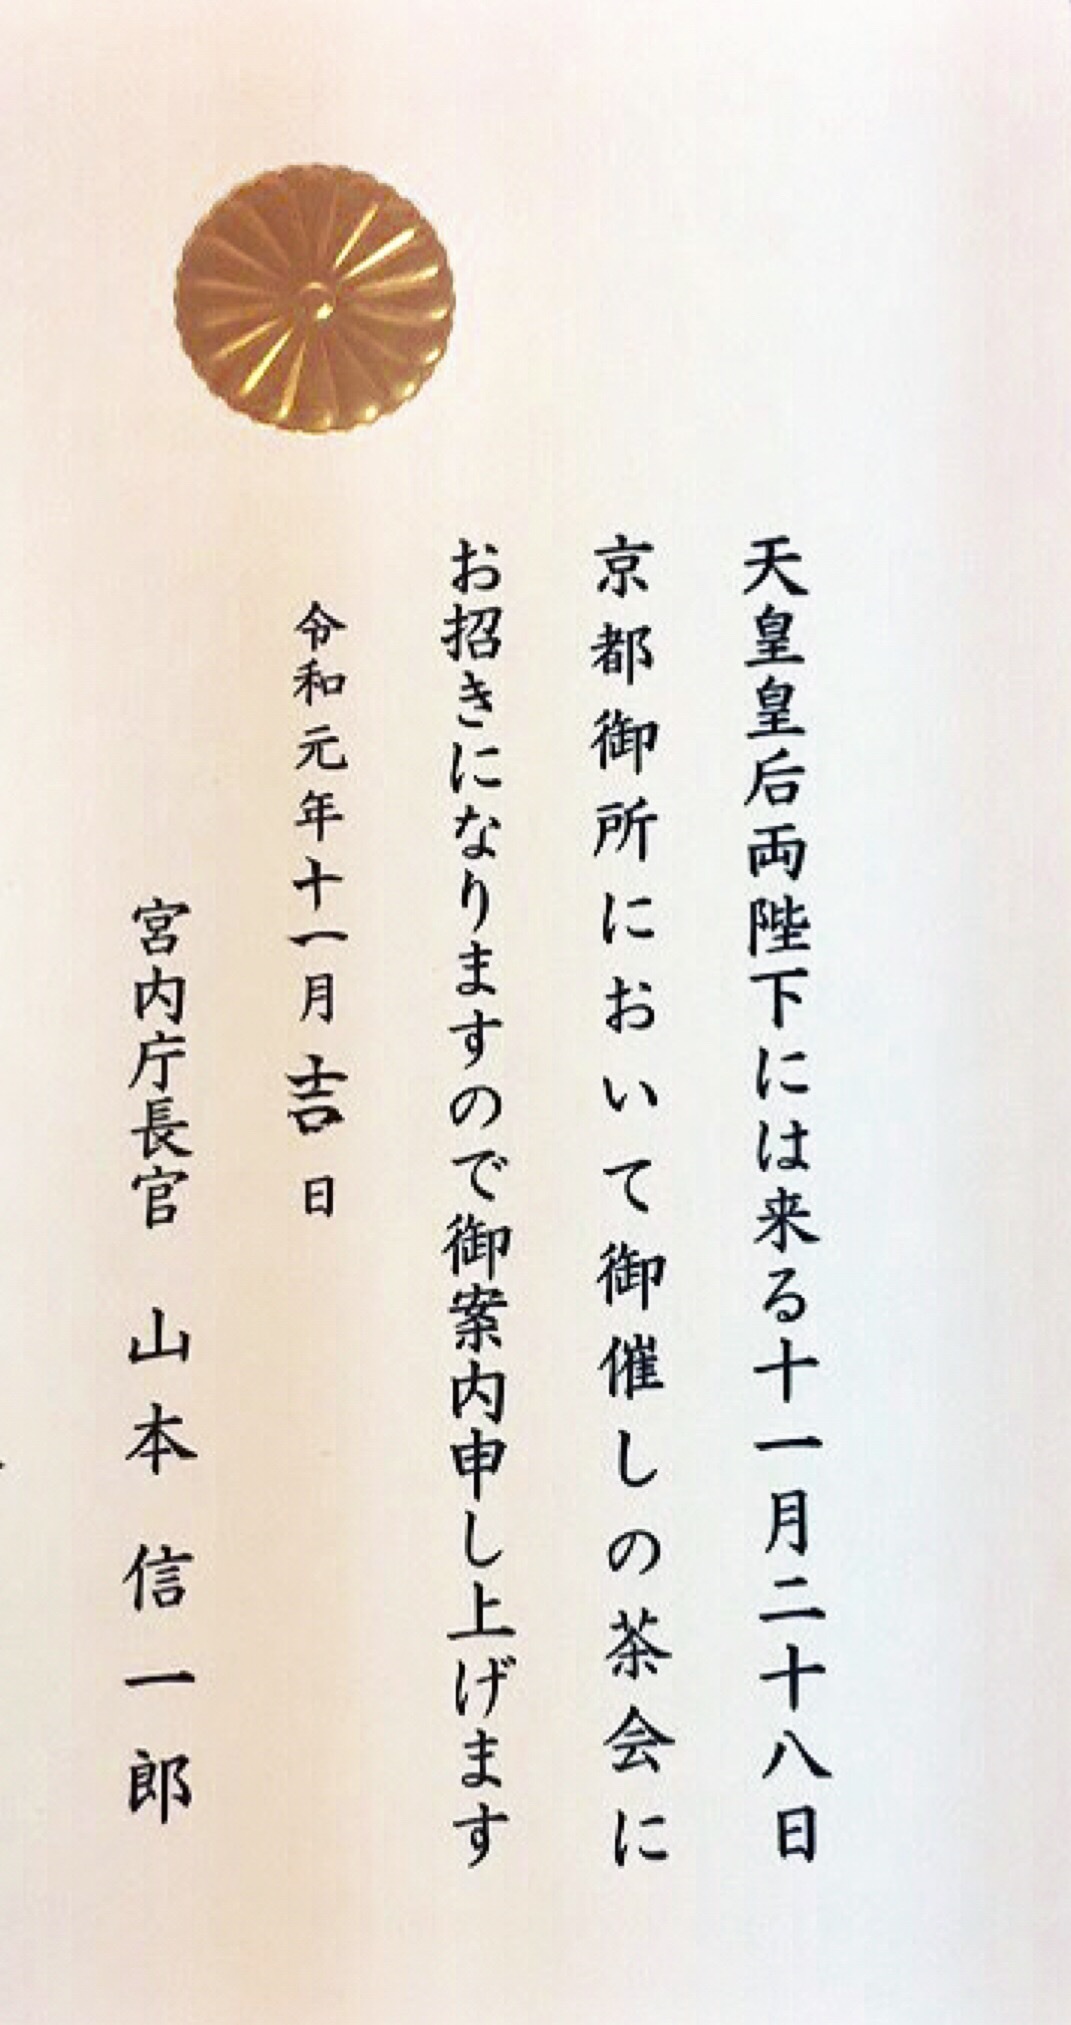 天皇皇后両陛下には来る十一月二十八日
京都御所において御催しの茶会に
お招きになりますので御案内申し上げます
令和元年十一月吉日
宮内庁長官 山本信一郎